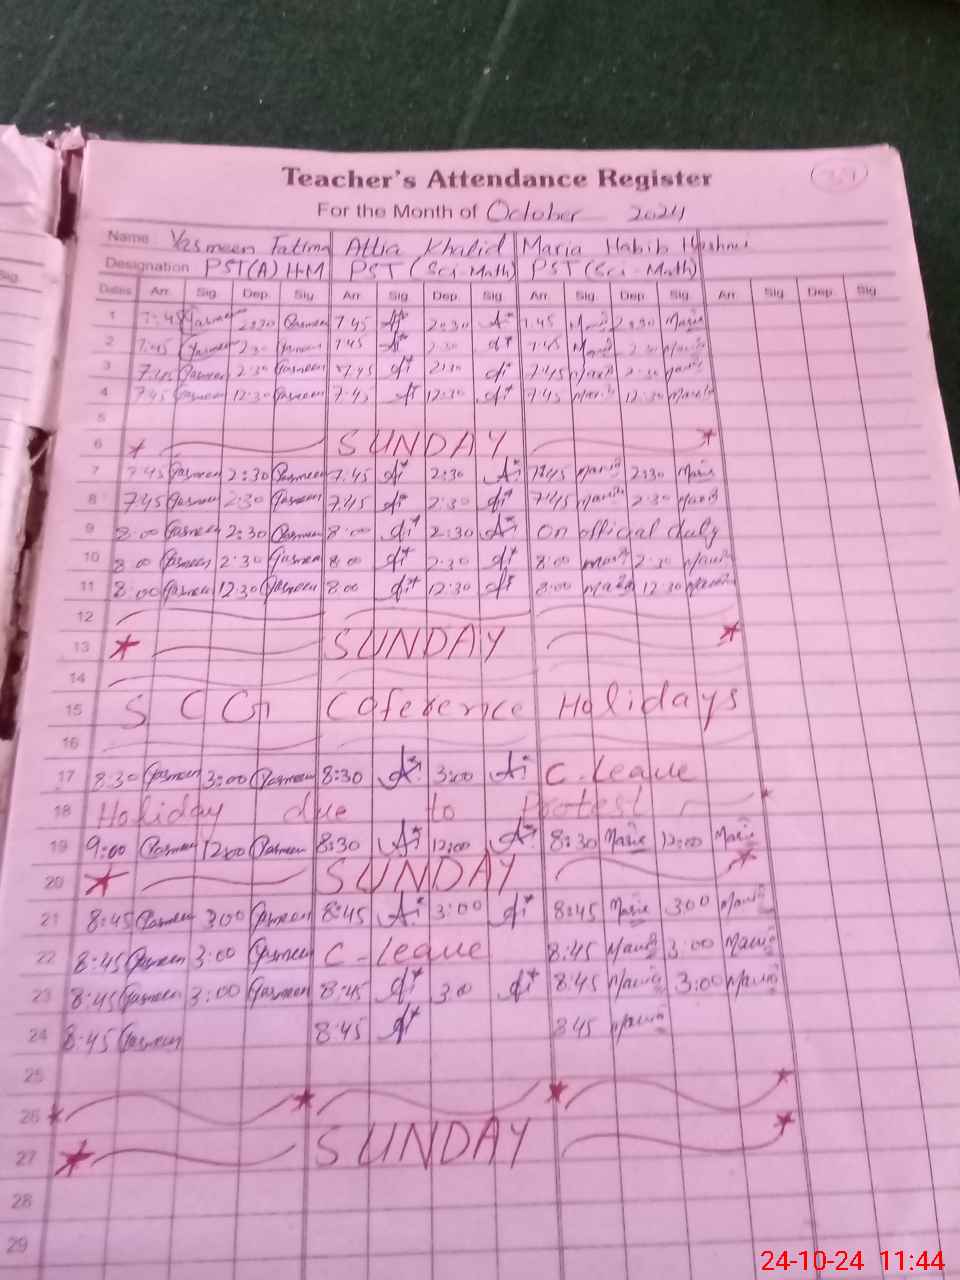 Teacher's Attendance Register
For the Month of October 2024
Name: Yasmeen Fatima Attia Khalid Maria Habib Hashmi
Designation PST(A) HM PST (Sci-Math) PST (Sci-Math)
Dates Arr. Sig. Dep. Sig. Arr. Sig. Dep. Sig. Arr. Sig. Dep. Sig. Arr. Sig. Dep. Sig
1 7:45 Yasmeen 2:30 Yasmeen 7:45 2:30 7:45 Maria 2:30 Maria
2 7:45 Yasmeen 2:30 Yasmeen 7:45 2:30 7:45 Maria 2:30 Maria
3 7:45 Yasmeen 2:30 Yasmeen 7:45 2:30 7:45 Maria 2:30 Maria
4 7:45 Yasmeen 12:30 Yasmeen 7:45 12:30 7:45 Maria 12:30 Maria
5
6 SUNDAY
7 7:45 Yasmeen 2:30 Yasmeen 7:45 2:30 7:45 Maria 2:30 Maria
8 7:45 Yasmeen 2:30 Yasmeen 7:45 2:30 7:45 Maria 2:30 Maria
9 8:00 Yasmeen 2:30 Yasmeen 8:00 2:30 On official duty
10 8:00 Yasmeen 2:30 Yasmeen 8:00 2:30 8:00 Maria 2:30 Maria
11 8:00 Yasmeen 12:30 Yasmeen 8:00 12:30 8:00 Maria 12:30 Maria
12
13 SUNDAY
14
15 S C O Coference Holidays
16
17 8:30 Yasmeen 3:00 Yasmeen 8:30 3:00 C-Leave
18 Holiday due to Protest
19 9:00 Yasmeen 12:00 Yasmeen 8:30 12:00 8:30 Maria 12:00 Maria
20 SUNDAY
21 8:45 Yasmeen 3:00 Yasmeen 8:45 3:00 8:45 Maria 3:00 Maria
22 8:45 Yasmeen 3:00 Yasmeen C-Leave 8:45 Maria 3:00 Maria
23 8:45 Yasmeen 3:00 Yasmeen 8:45 3:00 8:45 Maria 3:00 Maria
24 8:45 Yasmeen 8:45 8:45 Maria
25
26
27 SUNDAY
28
29
24-10-24 11:44